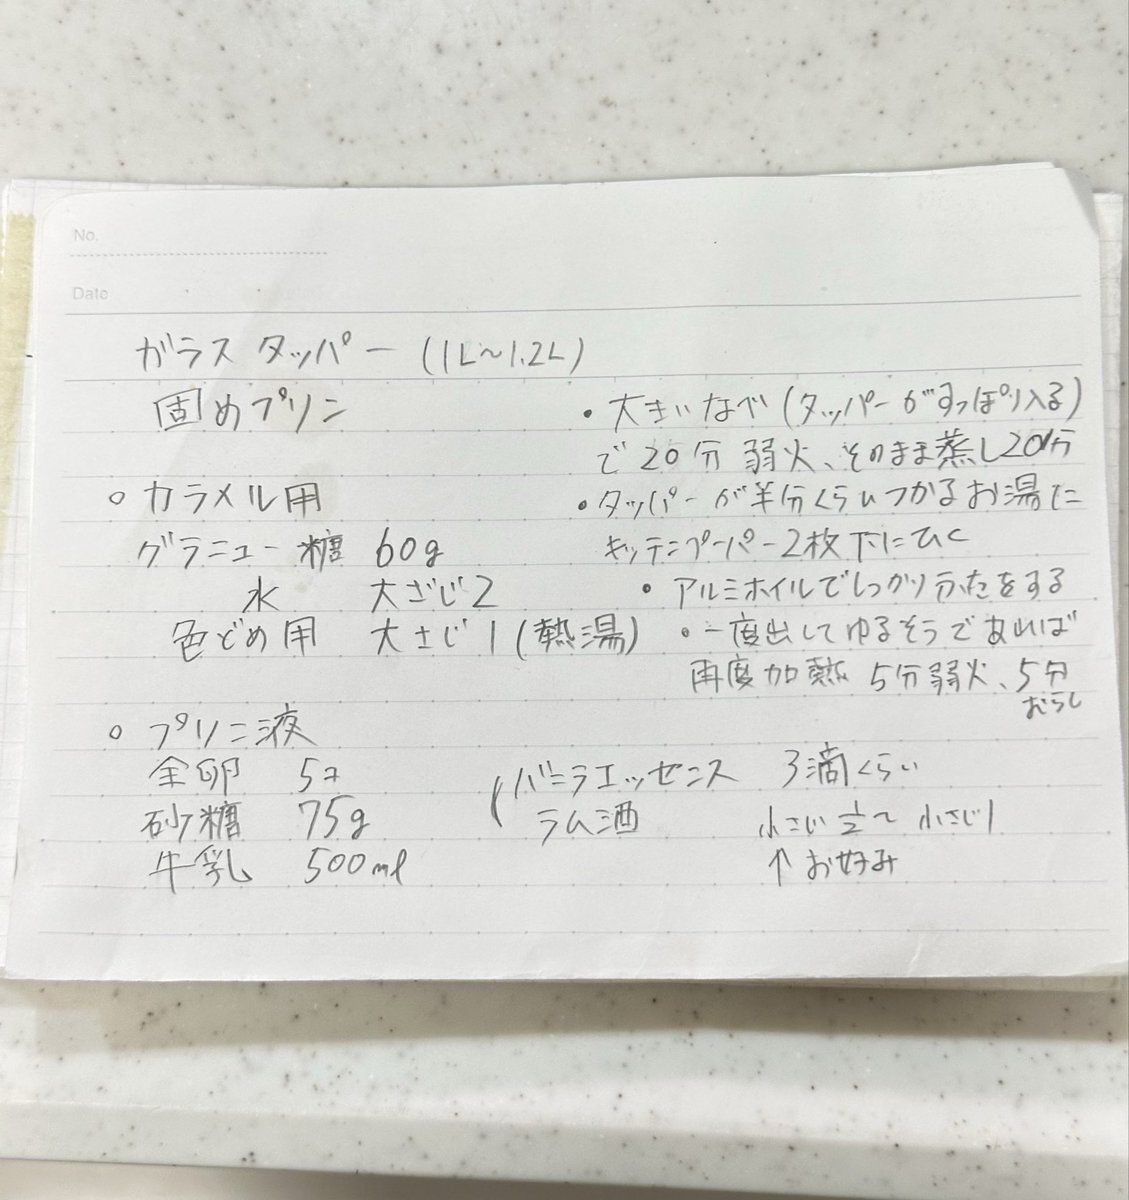 No.
Date
ガラス タッパー (1L〜1.2L)
固めプリン
○ カラメル用
グラニュー糖 60g
水 大さじ2
色どめ用 大さじ1(熱湯)
・大きいなべ(タッパーがすっぽり入る)
で20分弱火、そのまま蒸し20分
・タッパーが半分くらいつかるお湯に
キッチンペーパー2枚下にひく
・アルミホイルでしっかりふたをする
・一度出してゆるそうであれば
再度加熱 5分弱火、5分
むらし
○ プリン液
全卵 5コ
砂糖 75g
牛乳 500ml
(バニラエッセンス 3滴くらい
ラム酒 小さじ1/2〜小さじ1
↑お好み